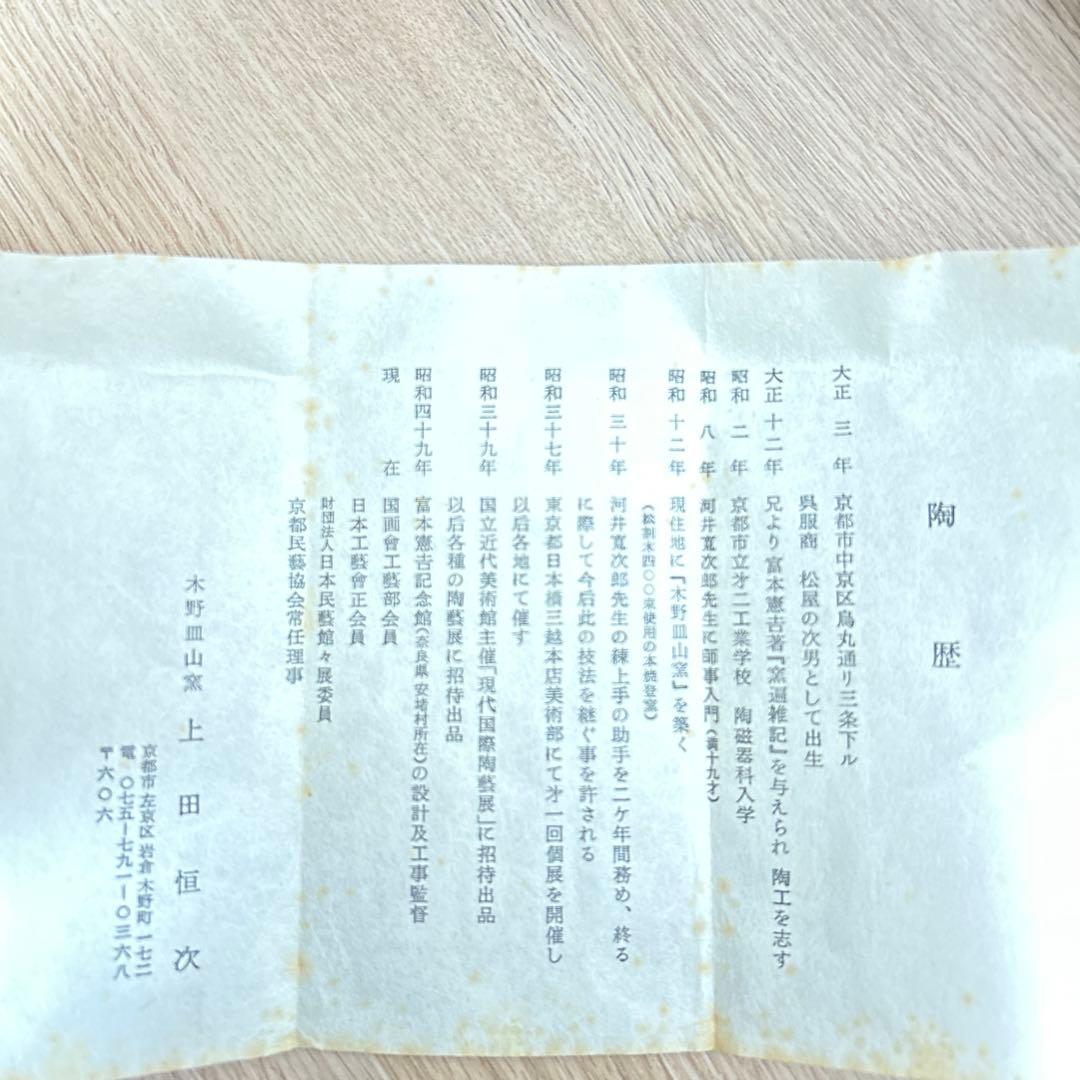 陶歴
大正三年 京都市中京区烏丸通リ三条下ル
呉服商 松屋の次男として出生
大正十二年 兄より富本憲吉著『窯邊雑記』を与えられ 陶工を志す
昭和二年 京都市立才二工業学校 陶磁器科入学
昭和八年 河井寛次郎先生に師事入門(満十九才)
昭和十二年 現住地に『木野皿山窯』を築く
(松割木四〇〇束使用の本焼登窯)
昭和三十年 河井寛次郎先生の練上手の助手を二ケ年間務め、終る
に際して今后此の技法を継ぐ事を許される
昭和三十七年 東京都日本橋三越本店美術部にて才一回個展を開催し
以后各地にて催す
昭和三十九年 国立近代美術館主催「現代国際陶藝展」に招待出品
以后各種の陶藝展に招待出品
昭和四十九年 富本憲吉記念館(奈良県安堵村所在)の設計及工事監督
現在 国画會工藝部会員
日本工藝會正会員
財団法人日本民藝館々展委員
京都民藝協会常任理事
木野皿山窯 上田恒次
京都市左京区岩倉木野町一七二
電〇七五―七九一―〇三六八
〒六〇六